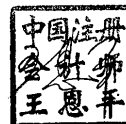 中国注册
会计师
王恩